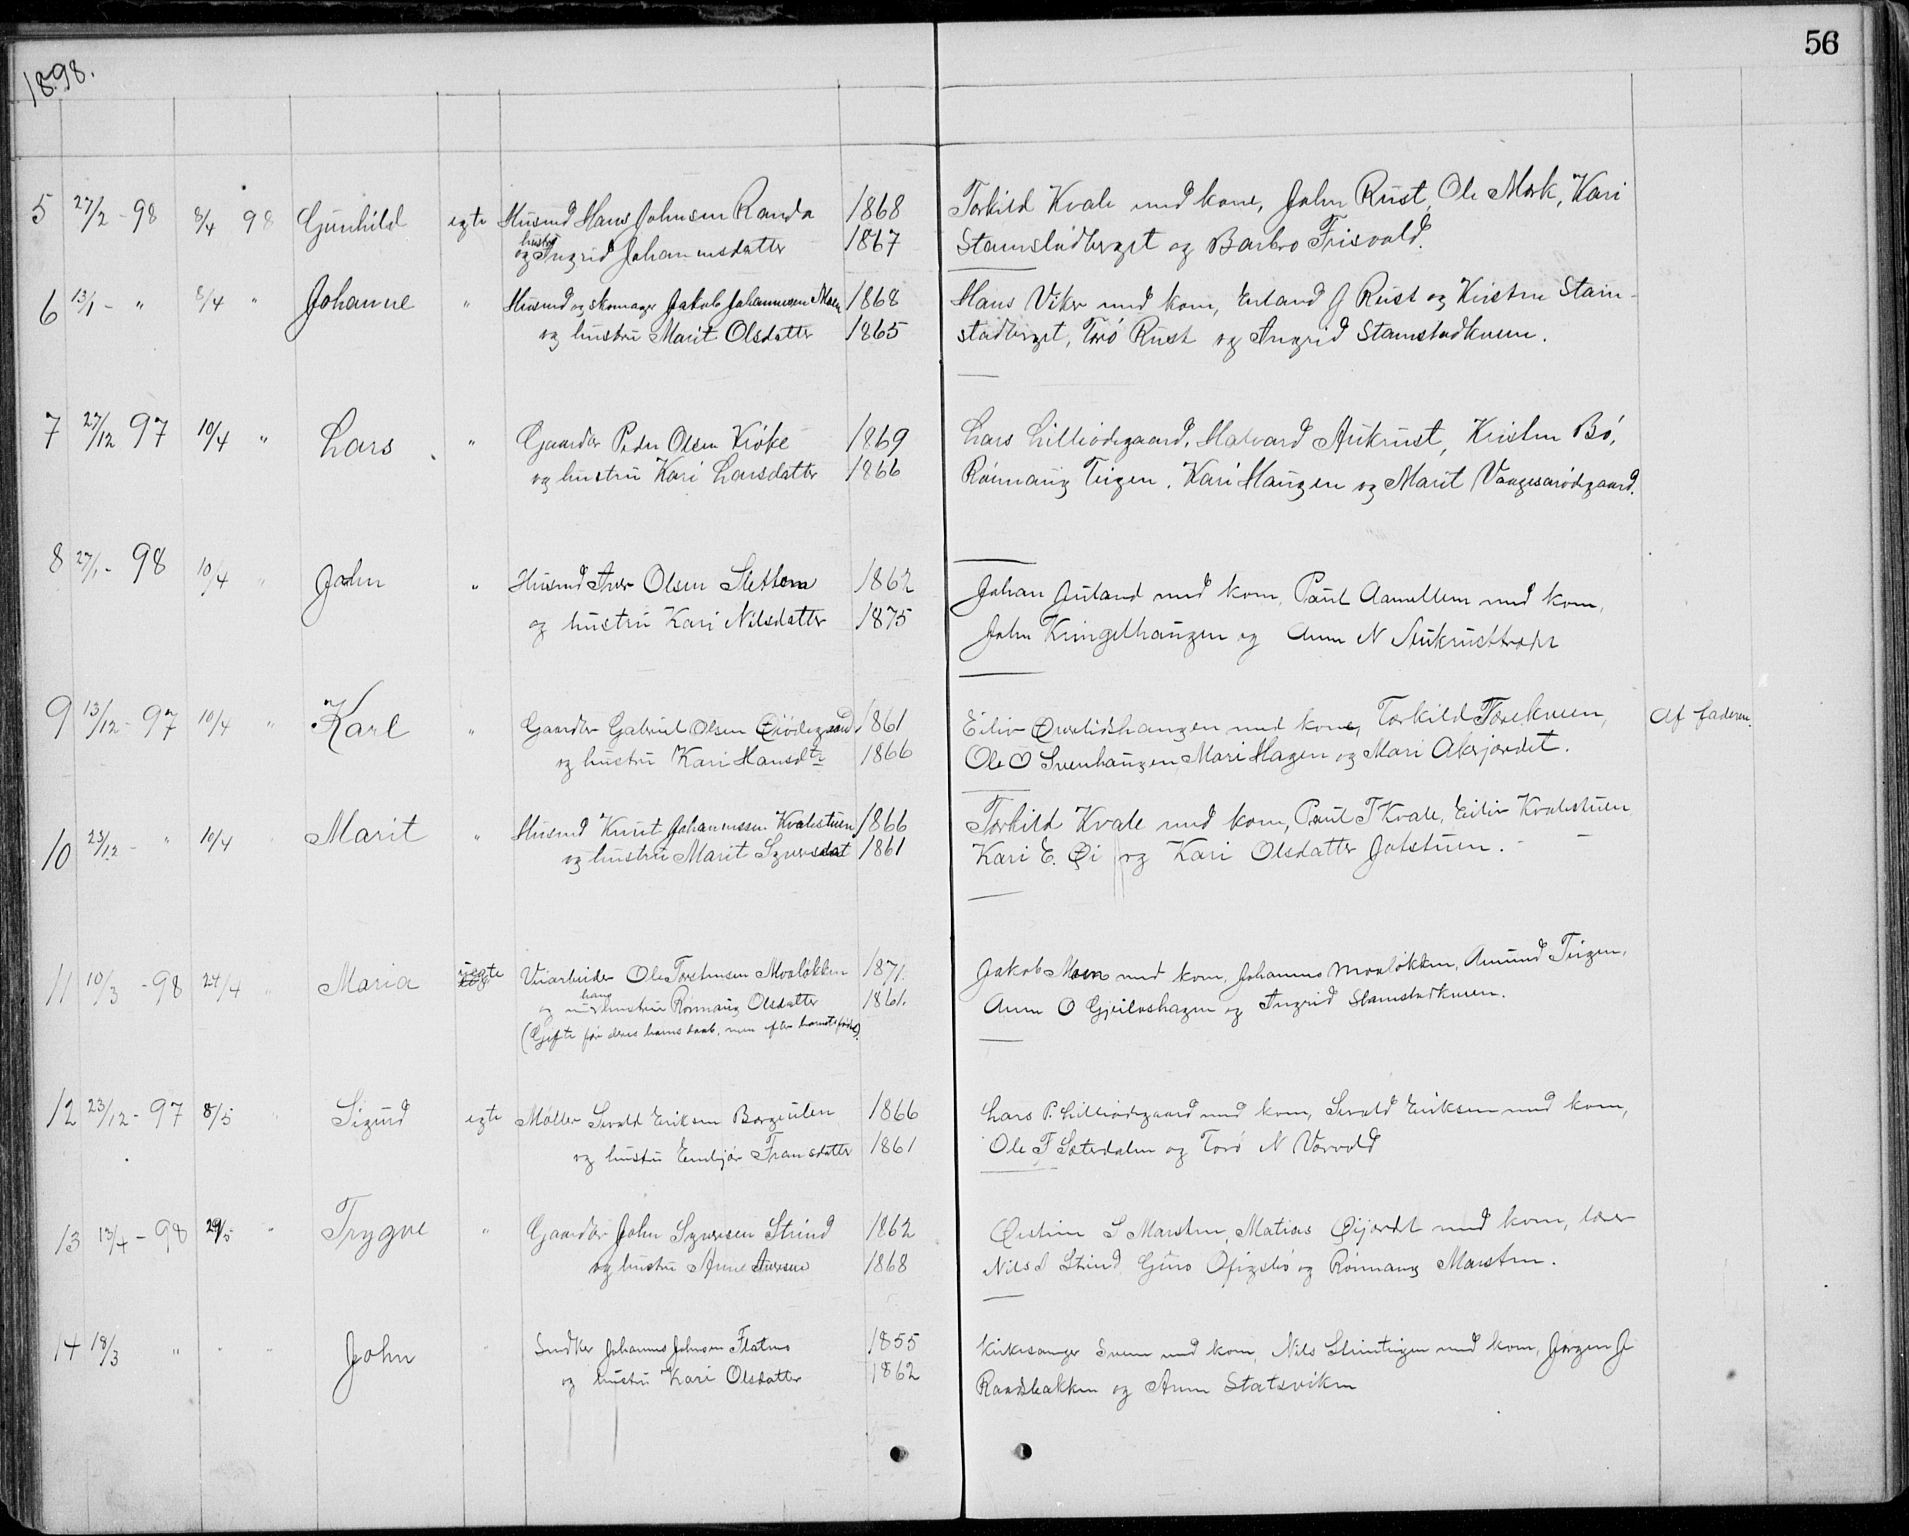 56
1898.
5 27/2 - 98 8/4 98 Gunhild egte Husmd Hans Johnsen Randa 1868 Torkild Kvale med kone, John Rust, Ole Mork, Kari
og hustru Ingrid Johannesdatter 1867 Stamstadberget og Barbro Frisvold.
6 13/1 - " 8/4 " Johanne " Husmd og skomager Jakob Johannesen Moen 1868 Hans Viker med kone, Erland J Rust og Kirstin Stam-
og hustru Marit Olsdatter 1865 stadberget, Torø Rust og Ingrid Stamstadkneen.
7 27/12 97 10/4 " Lars " Gaardbr Peder Olsen Krøke 1869 Lars Lilleødegaard, Halvard Aukrust, Kristen Bø,
og hustru Kari Larsdatter 1866 Rønnaug Teigen, Kari Haugen og Marit Vaagesarødegaard.
8 27/1 - 98 10/4 " John " Husmd Iver Olsen Sletten 1862 Johan Juland med kone, Paul Aamellem med kone,
og hustru Kari Nilsdatter 1875 John Kringelhaugen og Anne N Aukrusttrædet
9 13/12 - 97 10/4 " Karl " Gaardbr Gabriel Olsen Øiødegaard 1861 Eiliv Øverlidshaugen med kone, Torkild Torekneen, Af faderen.
og hustru Kari Hansdtr 1866 Ole O Svenhaugen, Mari Hagen og Mari Akerjordet.
10 23/12 - " 10/4 Marit " Husmd Knut Johannessen Kvalestuen 1866 Torkild Kvale med kone, Paul T Kvale, Eiliv Kvalestuen
og hustru Marit Syversdat 1861 Kari E. Øi og Kari Olsdatter Jotstuen.
11 10/3 - 98 24/4 " Maria uegte Veiarbeider Ole Torstensen Moaløkken 1871. Jakob Moen med kone, Johannes Moaløkken, Amund Teigen,
og hans hustru Rønnaug Olsdatter 1861. Anne O Gjeiloshagen og Ingrid Stamstadkneen.
(Gifte før deres barns daab, men efter barnets fødsel).
12 23/12 - 97 8/5 " Sigurd egte Møller Sevald Eriksen Borgeulen 1866 Lars P. Lilleødegaard med kone, Sevald Eriksen med kone,
og hustru Embjør Fransdatter 1861 Ole F Sæterdalen og Torø N Vorvold
13 13/4 - 98 29/5 " Trygve " Gaardbr John Syversen Strind 1862 Øistein S Marsten, Matias Øijordet med kone, lærer
og hustru Anne Iversen 1868 Nils S Strind, Guro Ofigsbø og Rønnaug Marsten.
14 18/3 " " " John " Snedker Johannes Johnsen Flatmo 1855 Kirkesanger Sveen med kone, Nils Skimtingen med kone, Jørgen J
og hustru Kari Olsdatter 1862 Randsbakken og Anne Statsviken